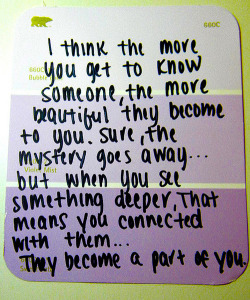 660C
I think the more
you get to know
someone, the more
beautiful they become
to you. Sure, the
mystery goes away...
but when you see
something deeper, that
means you connected
with them...
They become a part of you.